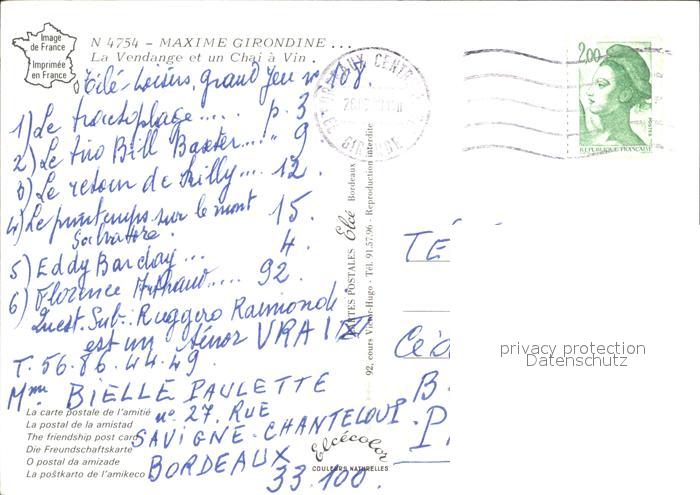 Image
de France
Imprimée
en France
N 4754 – MAXIME GIRONDINE ...
La Vendange et un Chai à Vin .
Télé-Loisirs, grand Jeu nº 108.
1) Le tractoplage..... p. 3
2) Le trio Bill Baxter.... " 9
3) Le retour de Lilly... 12.
4) Le printemps sur le mont 15.
Salvatore.
5) Eddy Barclay ... 4.
6) Florence Arthaud..... 92.
Quest. Sub.: Ruggero Raimondi
est un ténor VRAI
T. 56.86.44.49.
Mme BIELLE PAULETTE
nº 27, RUE
SAVIGNÉ-CHANTELOUP.
BORDEAUX
33.100.
La carte postale de l'amitié
La postal de la amistad
The friendship post card
Die Freundschaftskarte
O postal da amizade
La poŝtkarto de l'amikeco
Elcécolor
COULEURS NATURELLES
CARTES POSTALES Elcé Bordeaux
92, cours Victor-Hugo - Tél. 91.57.96 - Reproduction interdite
BORDEAUX CENTRE
GIRONDE
2,00
POSTES
REPUBLIQUE FRANÇAISE
TÉ
B.
P
privacy protection
Datenschutz